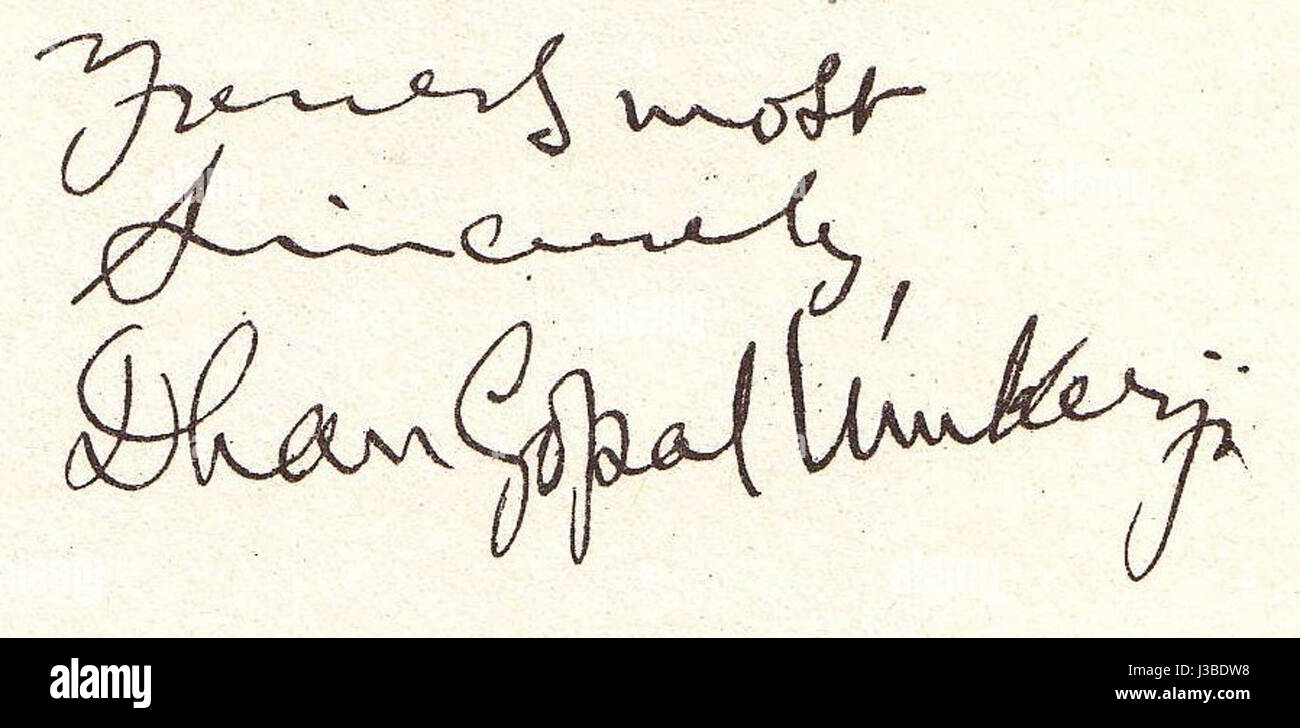 Yours most
Sincerely,
Dhan Gopal Mukerji
alamy
Image ID: J3BDW8
www.alamy.com